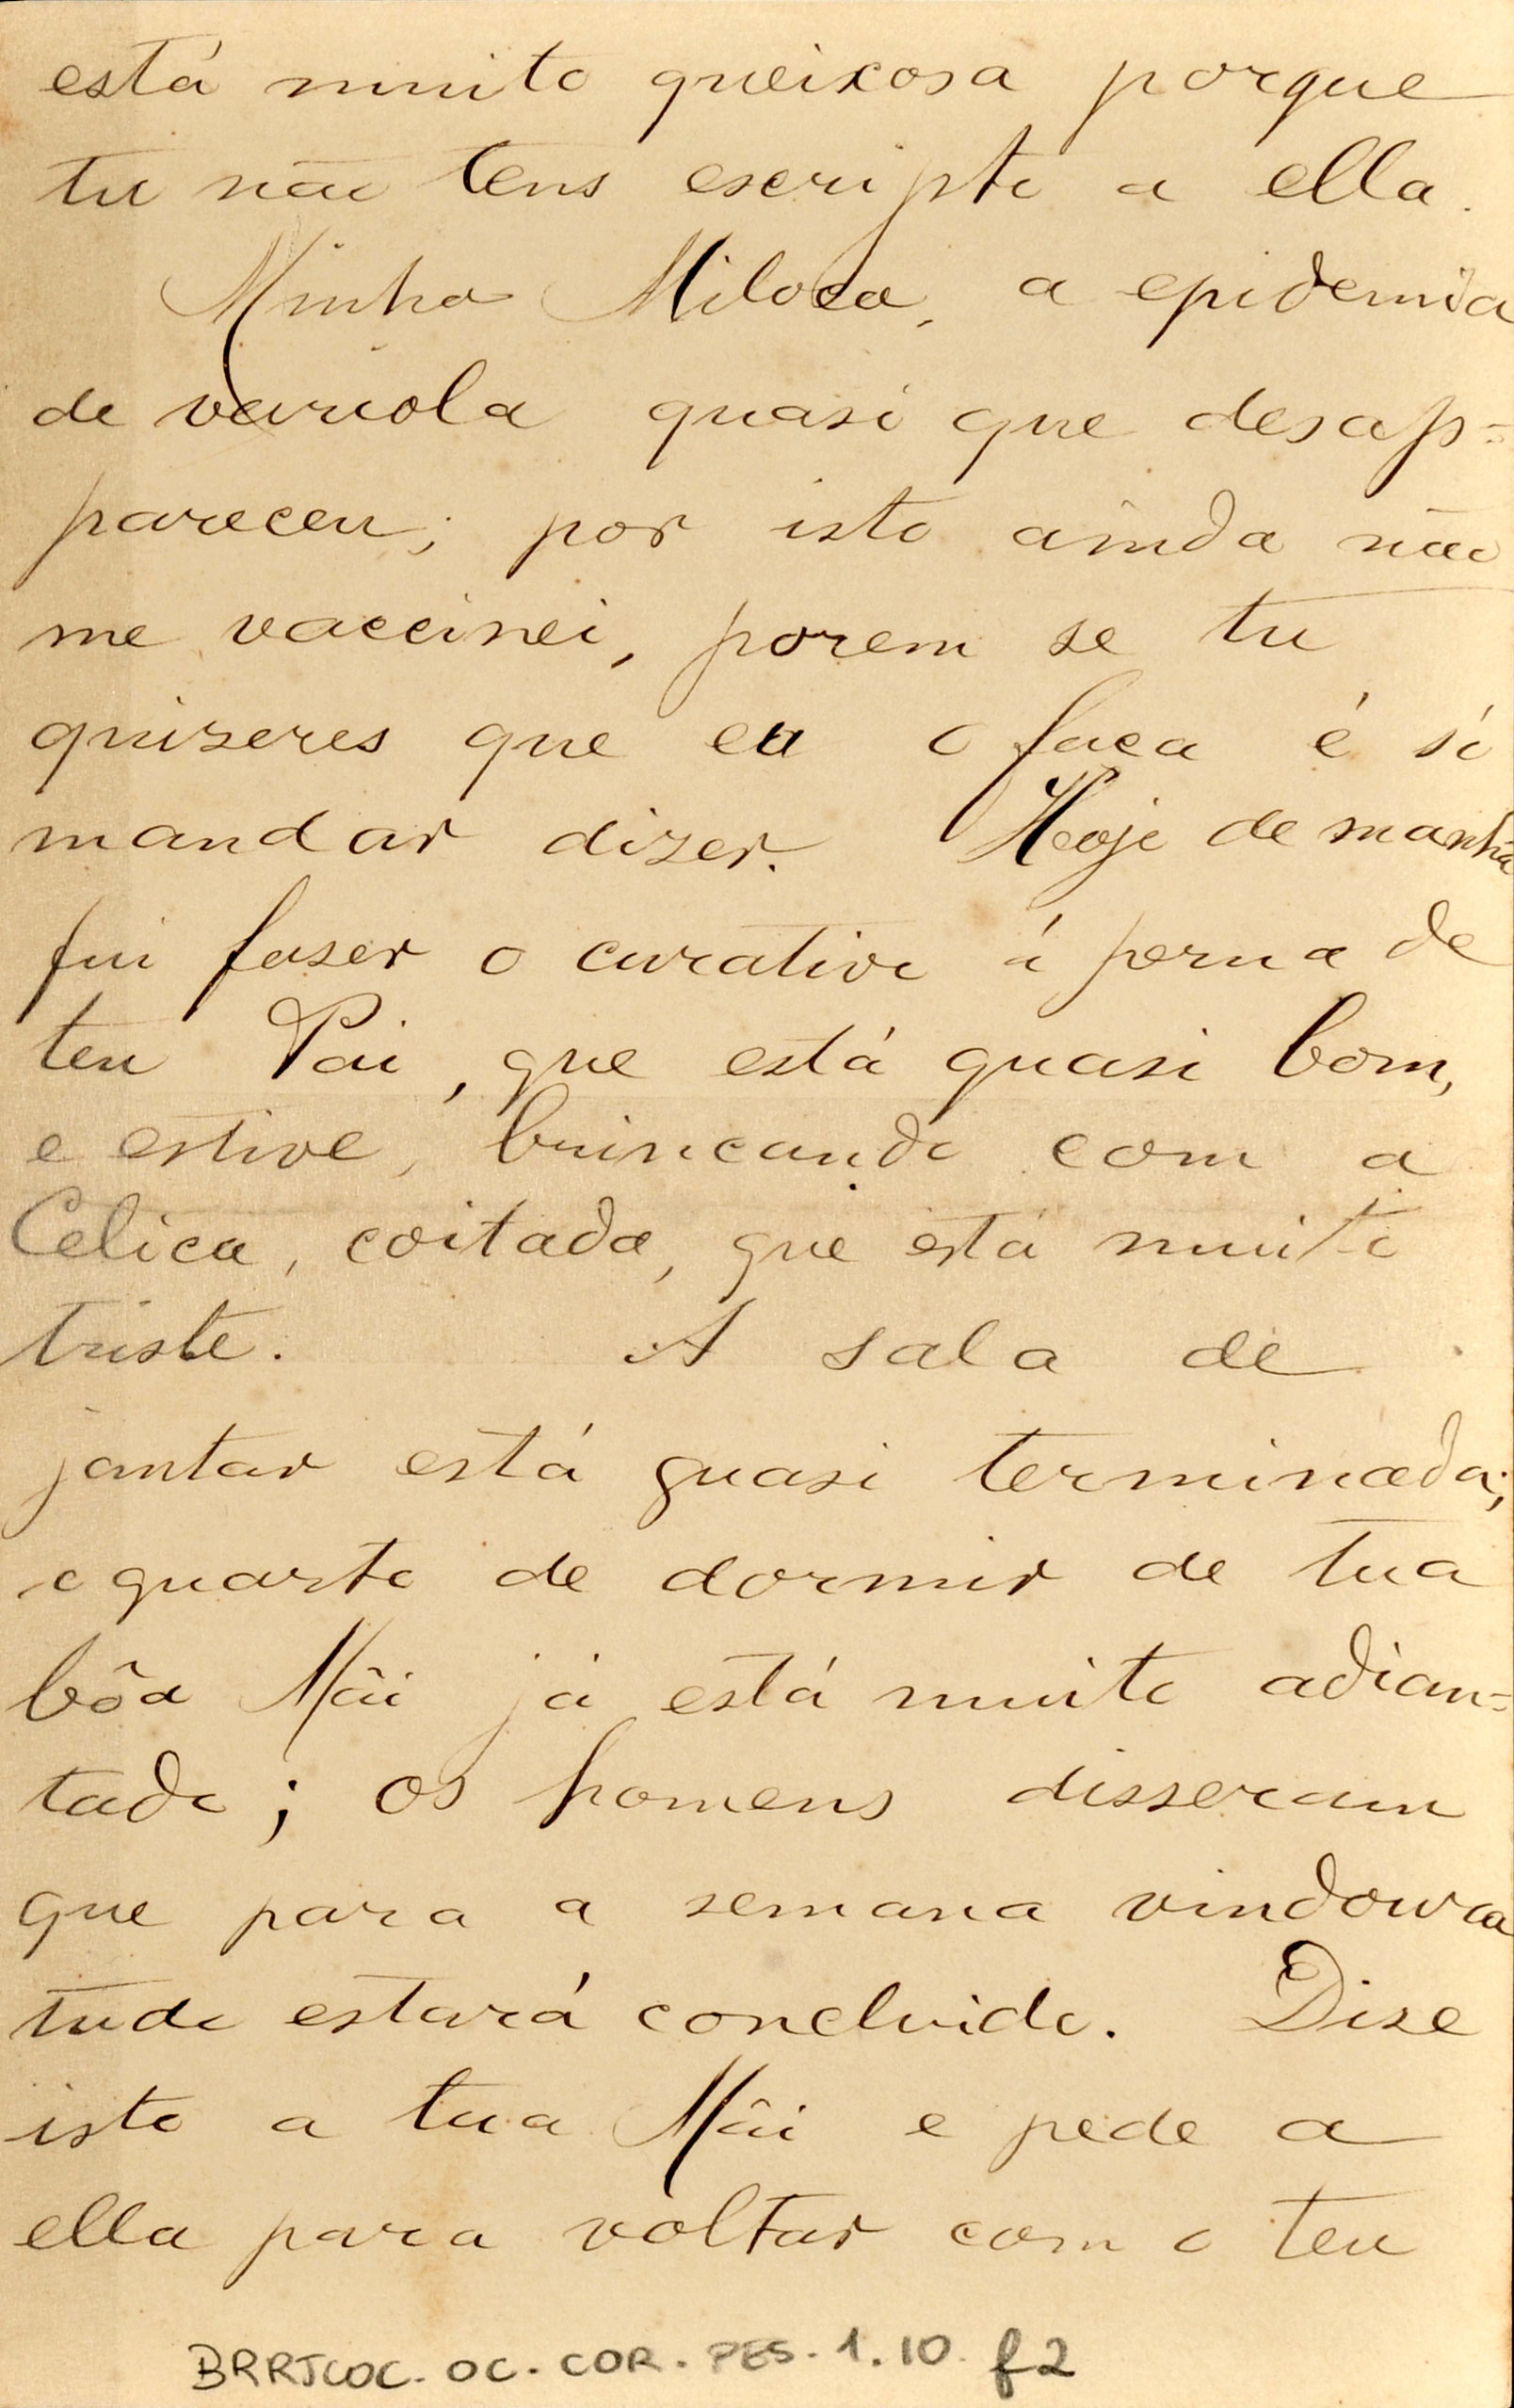 está muito queixosa porque
tu não tens escripto a ella.
Minha Miloca, a epidemia
de variola quasi que desap=
pareceu; por isto ainda não
me vaccinei, porem se tu
quizeres que eu o faca é só
mandar dizer. Hoje de manhã
fui faser o curativo á perna de
teu Pai, que está quasi bom,
e estive, brincando com a
Celica, coitada, que está muito
triste. A sala de
jantar está quasi terminada;
o quarto de dormir de tua
bôa Mãi já está muito adian=
tado; os homens disseram
que para a semana vindoura
tudo estará concluido. Dize
isto a tua Mãi e pede a
ella para voltar com o teu
BRRJCOC. OC. COR. PES. 1.10. f2